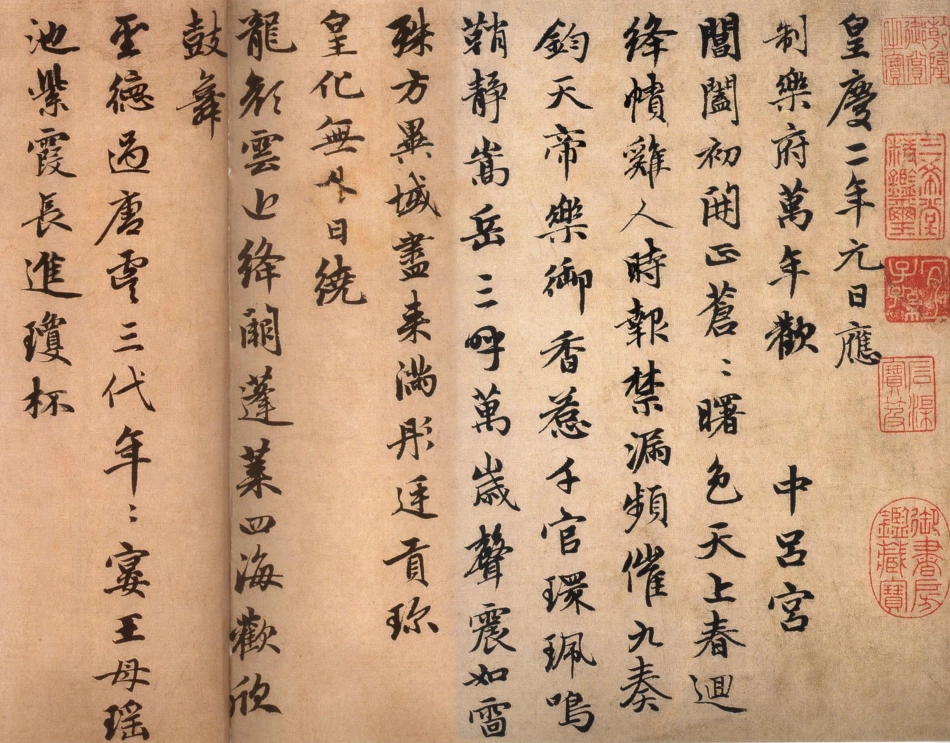 皇慶二年元日應
制樂府萬年歡 中呂宮
閶闔初開正蒼〻曙色天上春迴
絳幘雞人時報禁漏頻催九奏
鈞天帝樂御香惹千官環珮鳴
鞘靜嵩岳三呼萬歲聲震如雷
殊方異域盡来滿彤廷貢珎
皇化無外日繞
龍顏雲近絳闕蓬萊四海歡欣
鼓舞
聖德過唐虞三代年〻宴王母瑤
池紫霞長進瓊杯
三希堂精鑑璽
宜子孫
石渠寶笈
御書房鑑藏寶